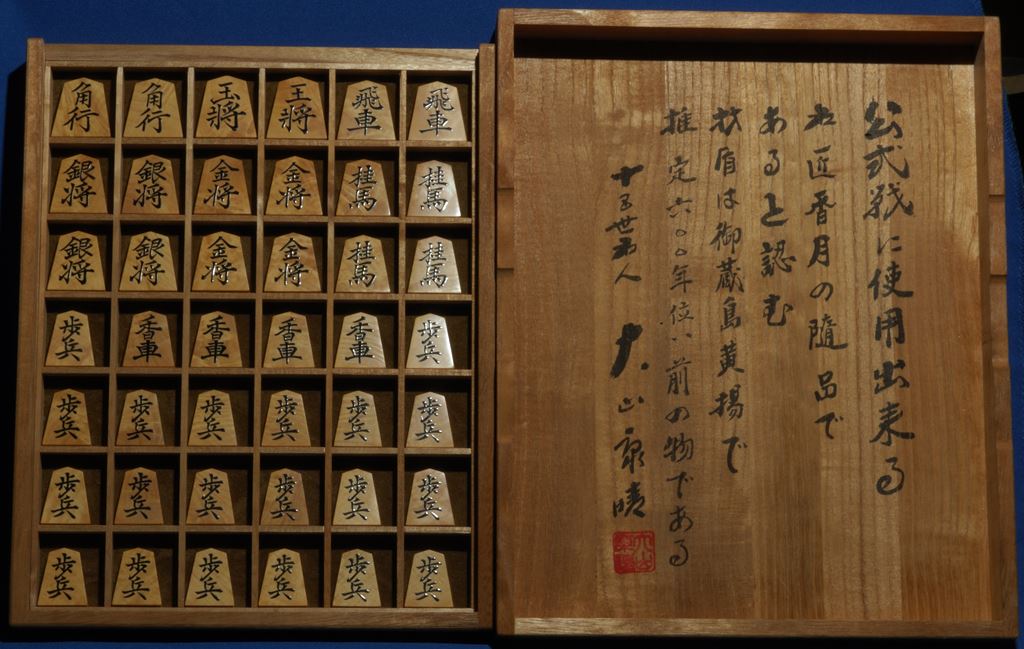 角行 角行 玉将 王将 飛車 飛車
銀将 銀将 金将 金将 桂馬 桂馬
銀将 銀将 金将 金将 桂馬 桂馬
歩兵 香車 香車 香車 香車 歩兵
歩兵 歩兵 歩兵 歩兵 歩兵 歩兵
歩兵 歩兵 歩兵 歩兵 歩兵 歩兵
歩兵 歩兵 歩兵 歩兵 歩兵 歩兵
公式戦に使用出来る
名匠香月の隨品で
あると認む
材質は御蔵島黄揚で
推定六〇〇年位い前の物である
十五世名人 大山康晴